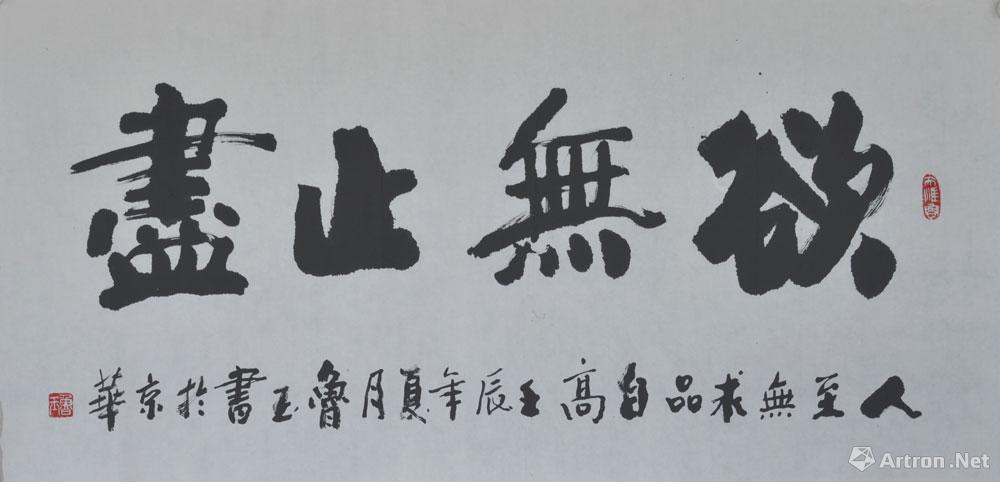 欲無止盡
人至無求品自高壬辰年夏月魯玉書於京華
Artron.Net